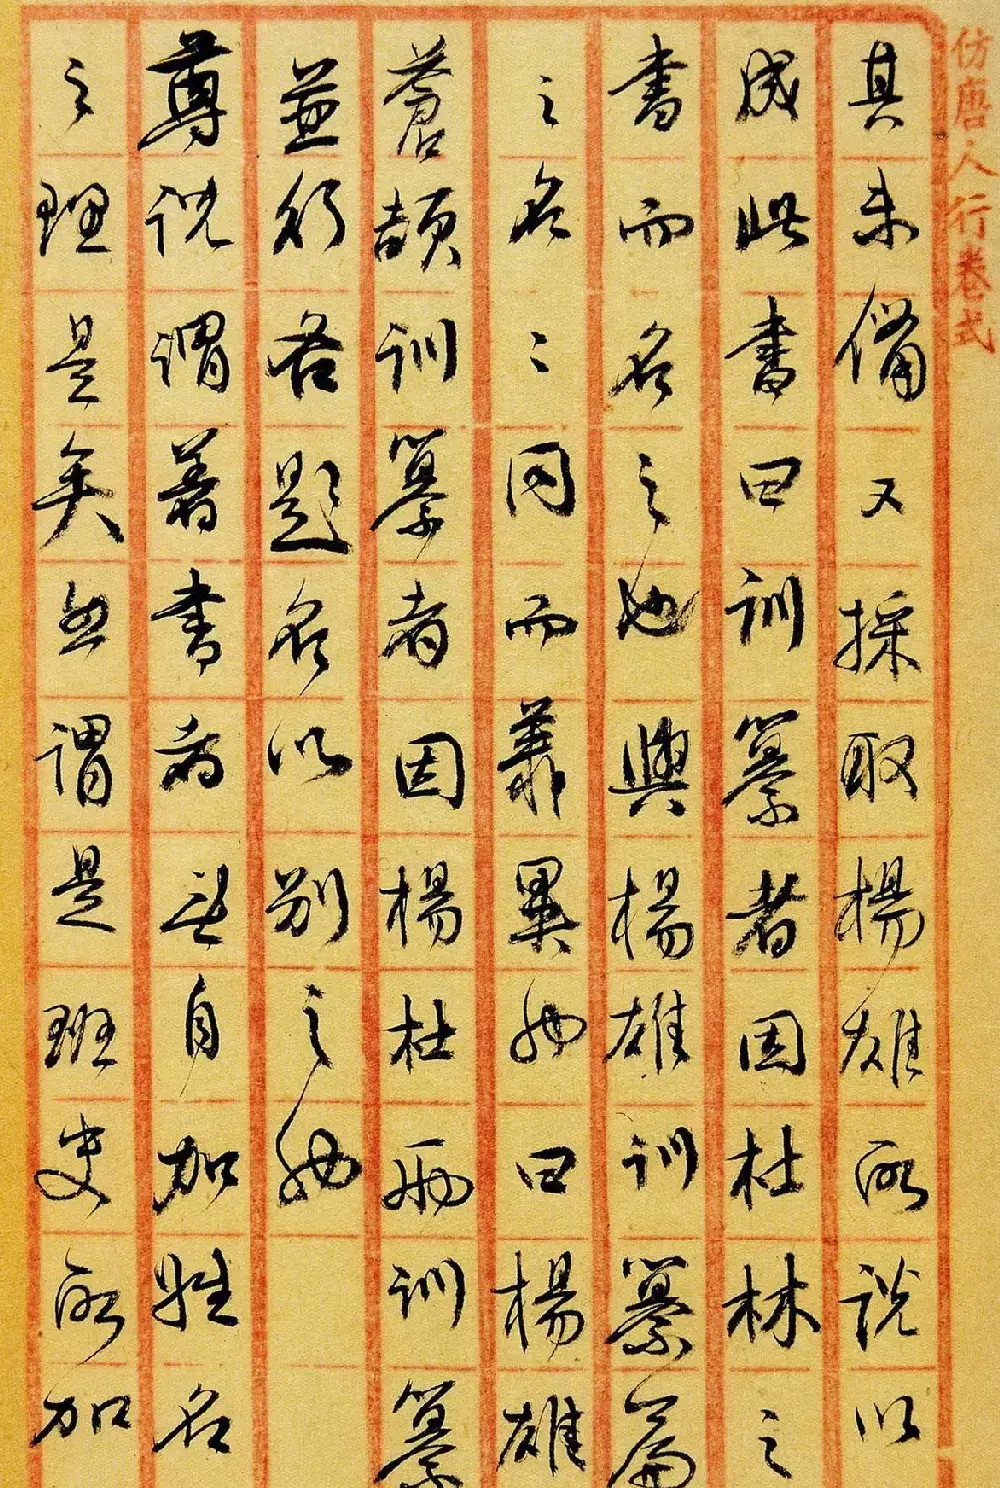 仿唐人行卷式
其未備又採取楊雄所說以
成此書曰訓纂者因杜林之
書而名之也與楊雄訓纂篇
之名〻同而義異也曰楊雄
蒼頡訓纂者因楊杜兩訓纂
並行各題名以別之也
尊說謂著書者無自加姓名
之理是矣而謂是班史所加